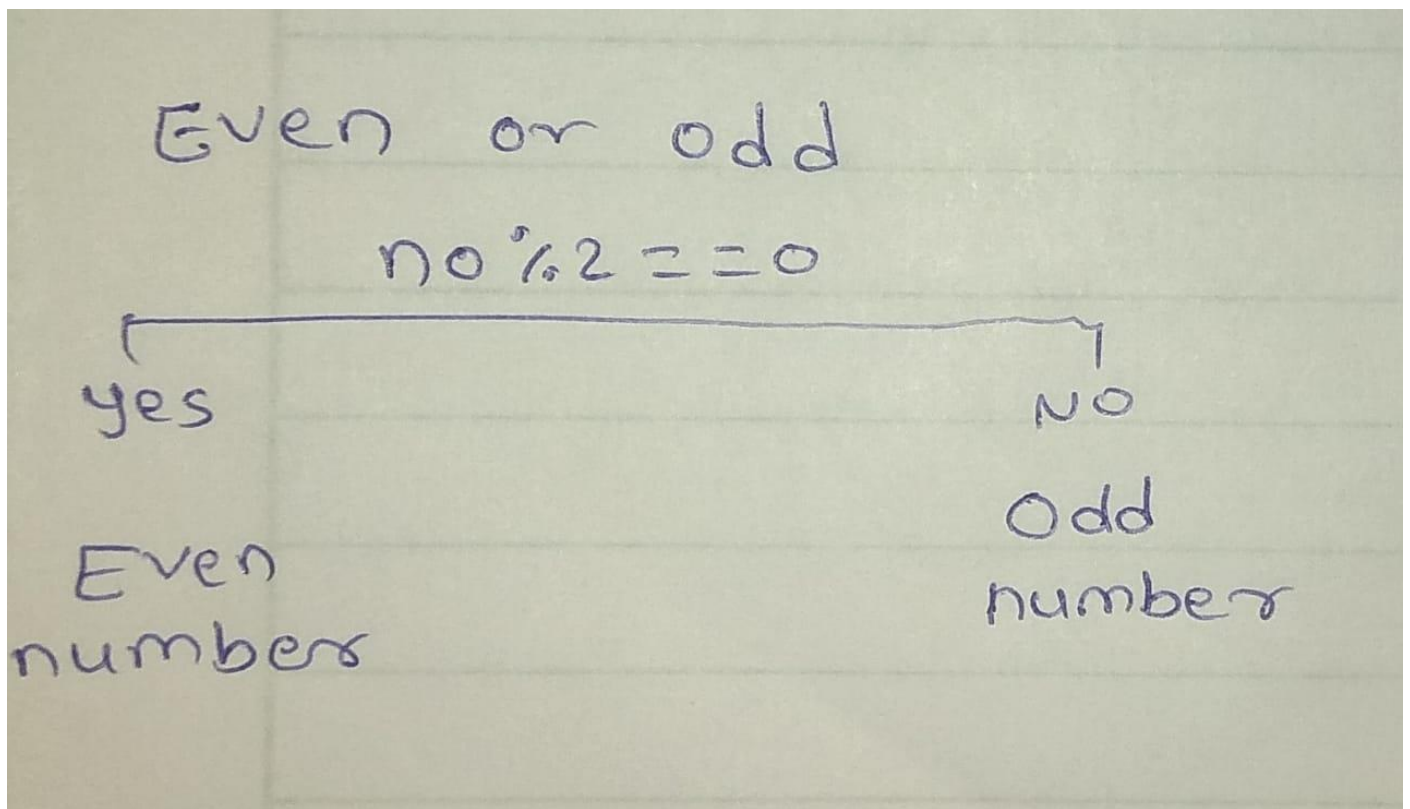 Even or odd
no%2==0
yes
NO
Even
number
Odd
number